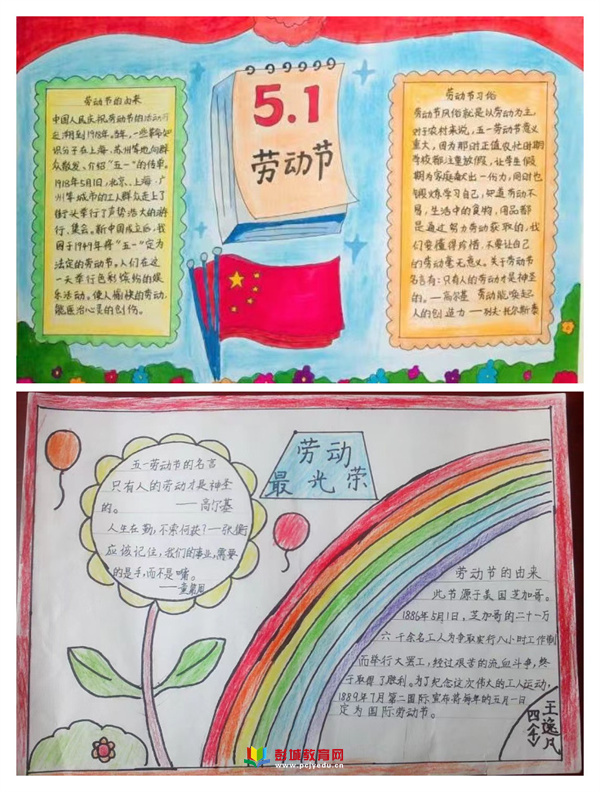 劳动节的由来
中国人民庆祝劳动节的活动可
追溯到1918年。当年,一些革命知
识分子在上海、苏州等地向群
众散发、介绍“五一”的传单。
1918年5月1日,北京、上海、广
州等城市的工人群众走上了
街头举行了声势浩大的游
行、集会。新中国成立后,我
国于1949年将“五一”定为
法定的劳动节。人们在这
一天举行色彩缤纷的娱
乐活动。使人愉快的劳动,
能医治心灵的创伤。
5.1
劳动节
劳动节习俗
劳动节风俗就是以劳动为主,
对于农村来说,五一劳动节意义
重大,因为那时正值农忙时期
学校都注重放假,让学生假
期为家庭献出一份力,同时也
锻炼学习自己,知道劳动不
易,生活中的食物,用品都
是通过努力劳动获取的,我
们要懂得珍惜,不要让自己
的劳动毫无意义。关于劳动节
名言有:只有人的劳动才是神圣
的。—高尔基 劳动能唤起
人的创造力 —列夫·托尔斯泰
五一劳动节的名言
只有人的劳动才是神圣
的。 ——高尔基
人生在勤,不索何获?—张衡
应该记住,我们的事业,需要
的是手,而不是嘴。
劳动
最光荣
劳动节的由来
此节源于美国芝加哥。
1886年5月1日,芝加哥的二十一万
六千余名工人为争取实行八小时工作制
而举行大罢工,经过艰苦的流血斗争,终
于取得了胜利。为了纪念这次伟大的工人运动,
1889年7月第二国际宣布将每年的五月一日
定为国际劳动节。
王逸凡
彭城教育网
www.pcjyedu.cn